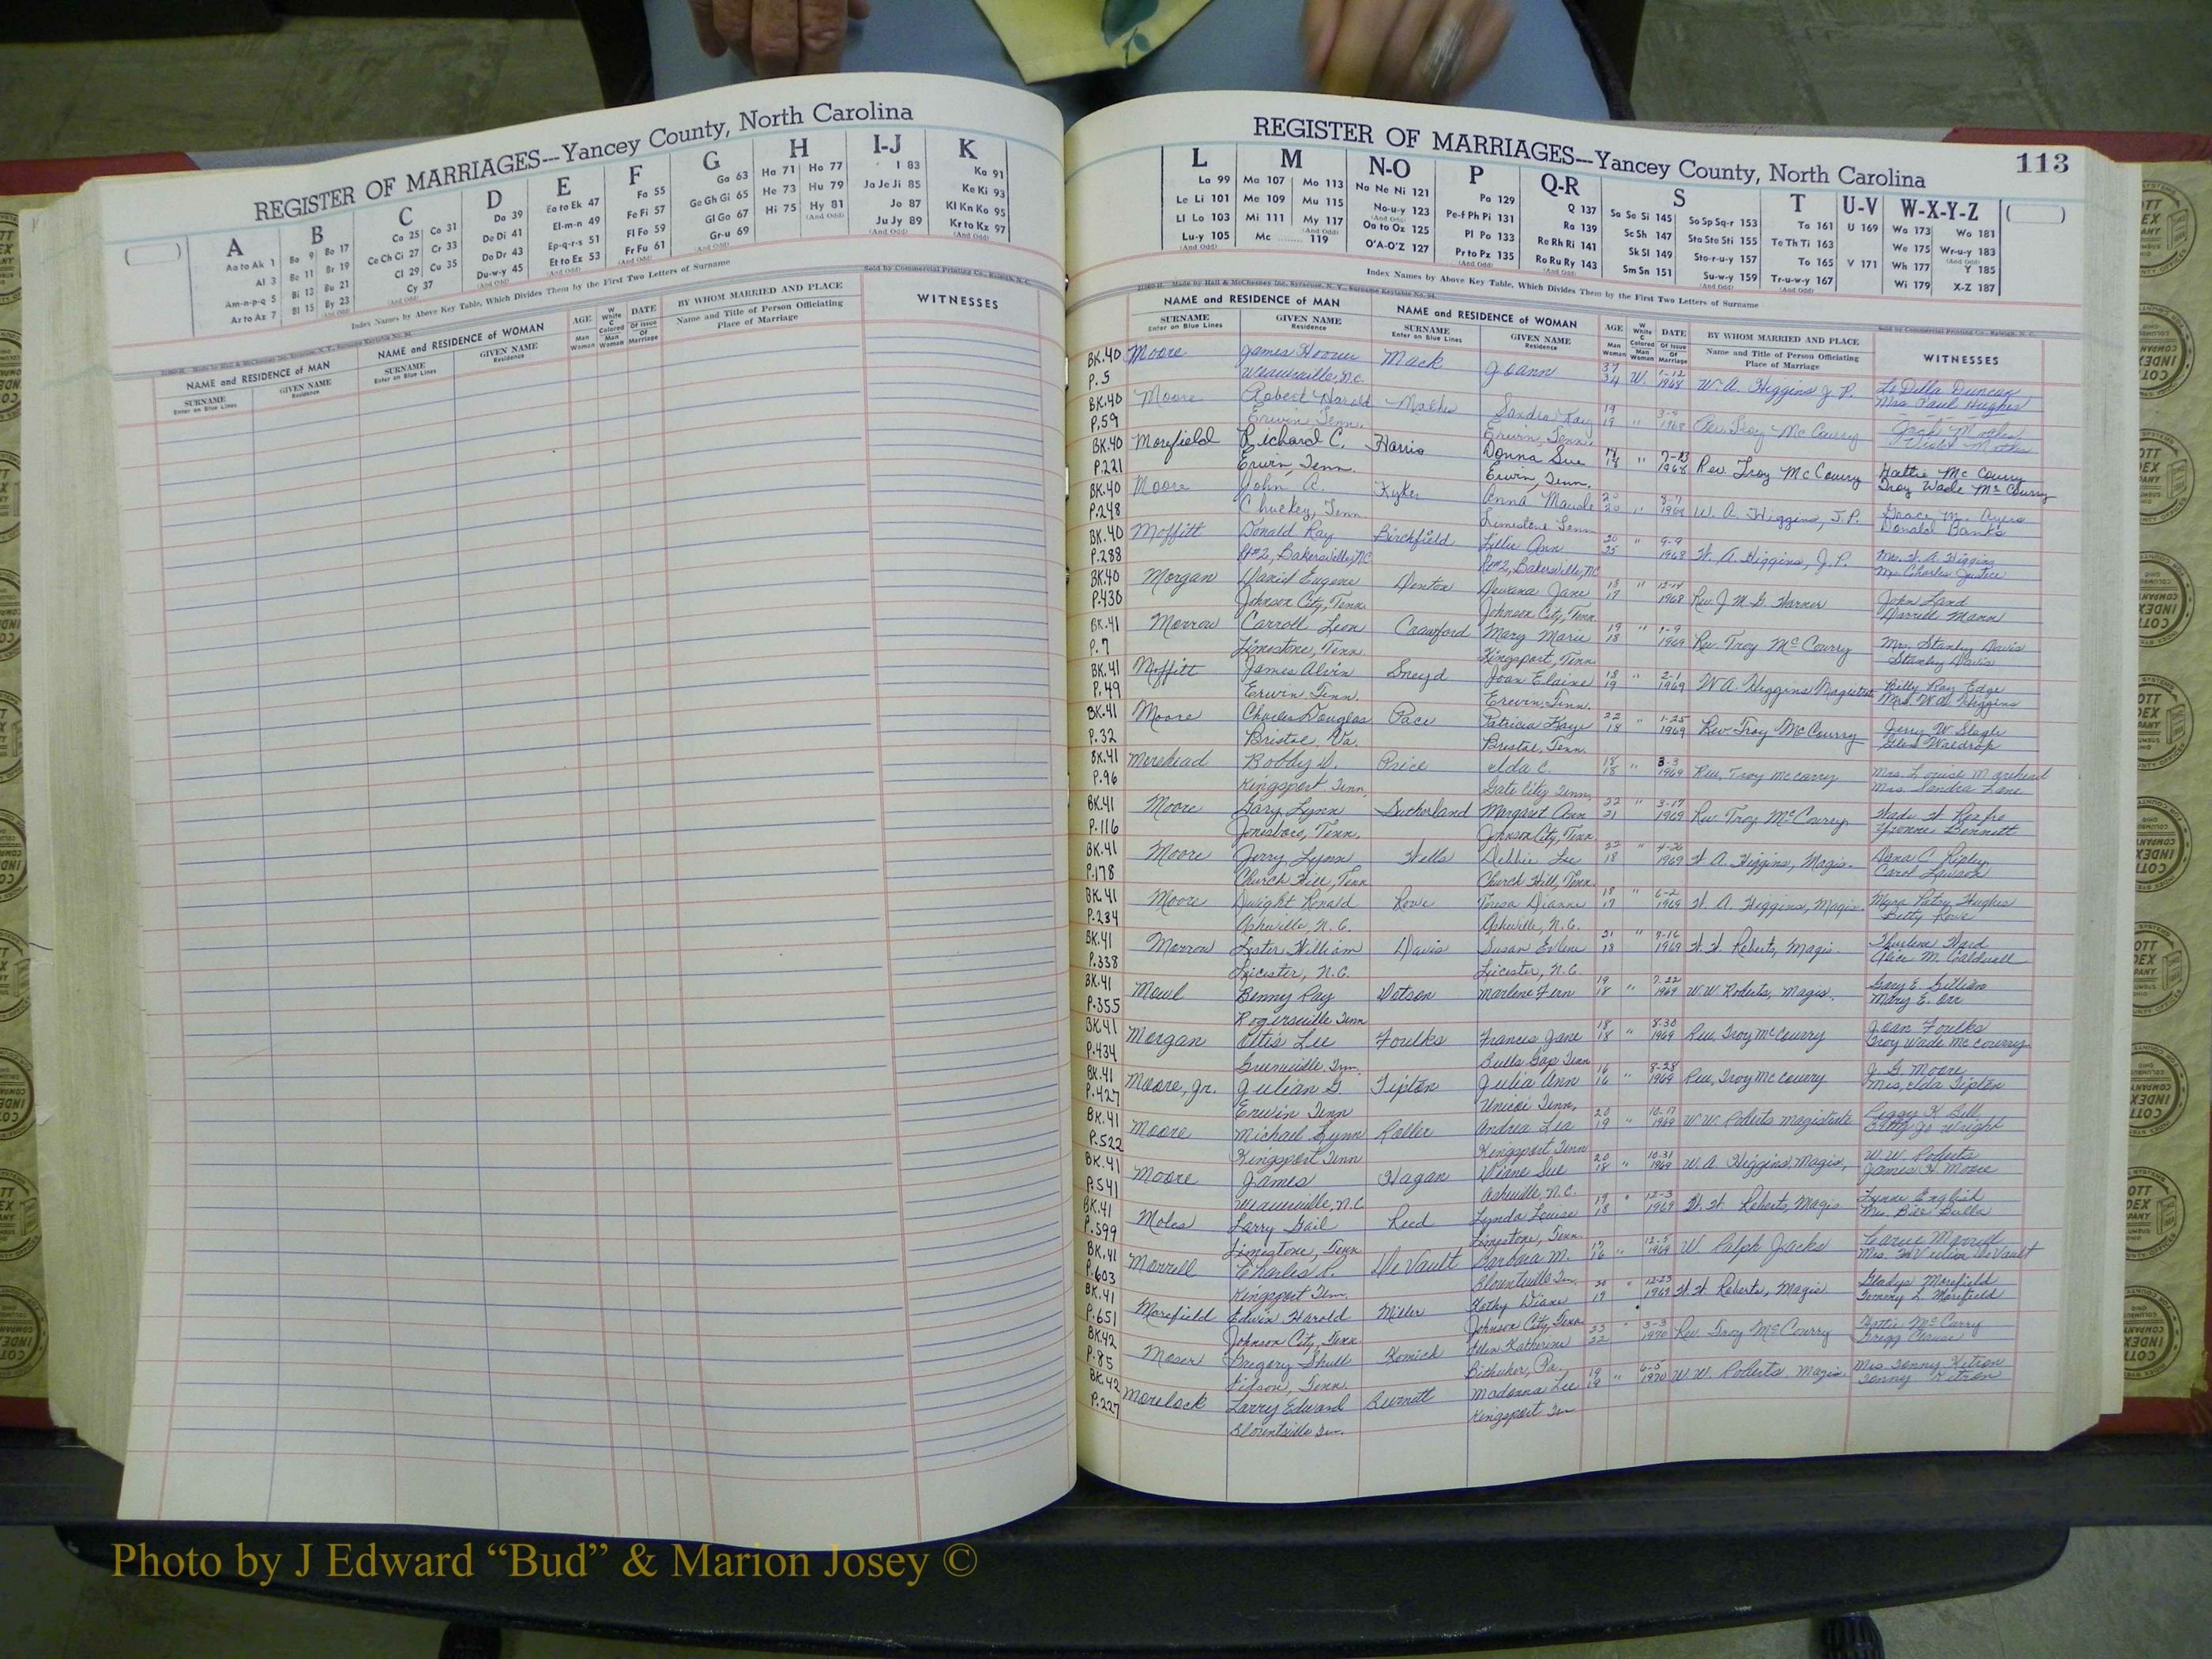 REGISTER OF MARRIAGES---Yancey County, North Carolina
A B C D E F G H I-J K
Aa to Ak 1
Al 3
Am-n-p-q 5
Ar to Az 7
Ba 9 Bo 17
Be 11 Br 19
Bi 13 Bu 21
Bl 15 By 23
Ca 25 Co 31
Ce Ch Ci 27 Cr 33
Cl 29 Cu 35
Cy 37
Da 39
De Di 41
Do Dr 43
Du-w-y 45
Ea to Ek 47
El-m-n 49
Ep-q-r-s 51
Et to Ez 53
Fa 55
Fe Fi 57
Fl Fo 59
Fr Fu 61
Ga 63
Ge Gh Gi 65
Gl Go 67
Gr-u 69
Ha 71 Ho 77
He 73 Hu 79
Hi 75 Hy 81
I 83
Ja Je Ji 85
Jo 87
Ju Jy 89
Ka 91
Ke Ki 93
Kl Kn Ko 95
Kr to Kz 97
Index Names by Above Key Table, Which Divides Them by the First Two Letters of Surname
Sold by Commercial Printing Co., Raleigh, N. C.
NAME and RESIDENCE of MAN
SURNAME
Enter on Blue Lines
GIVEN NAME
Residence
NAME and RESIDENCE of WOMAN
SURNAME
Enter on Blue Lines
GIVEN NAME
Residence
AGE
Man
Woman
W White
C Colored
Man
Woman
DATE
Of Issue
Of Marriage
BY WHOM MARRIED AND PLACE
Name and Title of Person Officiating
Place of Marriage
WITNESSES
REGISTER OF MARRIAGES---Yancey County, North Carolina
113
L M N-O P Q-R S T U-V W-X-Y-Z
La 99
Le Li 101
Ll Lo 103
Lu-y 105
Ma 107 Mo 113
Me 109 Mu 115
Mi 111 My 117
Mc 119
Na Ne Ni 121
No-u-y 123
Oa to Oz 125
O'A-O'Z 127
Pa 129
Pe-f Ph Pi 131
Pl Po 133
Pr to Pz 135
Q 137
Ra 139
Re Rh Ri 141
Ro Ru Ry 143
Sa Se Si 145 So Sp Sq-r 153
Sc Sh 147 Sta Ste Sti 155
Sk Sl 149 Sto-r-u-y 157
Sm Sn 151 Su-w-y 159
Ta 161
Te Th Ti 163
To 165
Tr-u-w-y 167
U 169
V 171
Wa 173 Wo 181
We 175 Wr-u-y 183
Wh 177 Y 185
Wi 179 X-Z 187
Index Names by Above Key Table, Which Divides Them by the First Two Letters of Surname
NAME and RESIDENCE of MAN
SURNAME
Enter on Blue Lines
GIVEN NAME
Residence
NAME and RESIDENCE of WOMAN
SURNAME
Enter on Blue Lines
GIVEN NAME
Residence
AGE
Man
Woman
W White
C Colored
Man
Woman
DATE
Of Issue
Of Marriage
BY WHOM MARRIED AND PLACE
Name and Title of Person Officiating
Place of Marriage
WITNESSES
BK.40 Moore James Hoover Mack Joann 37 W. 1-12 W. A. Higgins J. P. Duncan
P.5 Weaverville, N.C. 34 1968 Mrs. Paul Hughes
BK.40 Moore Robert Harold Sandra Kay 19 " Rev. Troy McCoury
P.59 Erwin, Tenn. Erwin, Tenn. 19 1968
BK.40 Morefield Richard C. Harris Donna Sue " Rev. Troy McCoury Hattie McCoury
P.221 Erwin, Tenn. Erwin, Tenn. 18 1968 Troy Wade McCoury
BK.40 Moore John A. Kyker Anna Maude 20 " W. A. Higgins, J.P. Grace M. Ayers
P.248 Chuckey, Tenn. Limestone Tenn 20 1968 Donald Banks
BK.40 Moffitt Donald Ray Birchfield Lillie Ann 20 " 9-9 W. A. Higgins, J.P. Mrs. W. A. Higgins
P.288 Rt#2, Bakersville, NC Rt#2, Bakersville, NC 25 1968 Mrs. Charles Justice
BK.40 Morgan David Eugene Denton Jane " 12-14 Rev. J. M. G. Warner John Land
P.430 Johnson City, Tenn. Johnson City, Tenn. 17 1968 Darrell Mann
BK.41 Morrow Carroll Leon Crawford Mary Marie 19 " 1-9 Rev. Troy McCoury Mrs. Stanley Davis
P.7 Limestone, Tenn. Kingsport, Tenn. 18 1969 Stanley Davis
BK.41 Moffitt James Alvin Sneyd Joan Elaine 18 " 2-1 W A. Higgins Magistrate Billy Ray Edge
P.49 Erwin, Tenn. Erwin, Tenn. 19 1969 Mrs. W.A. Higgins
BK.41 Moore Charles Douglas Pace Patricia Kaye 22 " 1-25 Rev. Troy McCoury Jerry W Slagle
P.32 Bristol, Va. Bristol, Tenn. 18 1969 Glen Waldrop
BK.41 Morehead Bobby D. Price Ida C. 18 " 3-3 Rev. Troy McCoury Mrs. Louise Morehead
P.96 Kingsport Tenn. Gate City Tenn. 18 1969 Mrs Sandra Lane
BK.41 Moore Gary Lynn Sutherland Margaret Ann 22 " 3-17 Rev. Troy McCoury Wade H Renfro
P.116 Jonesboro, Tenn. Johnson City, Tenn. 21 1969 Yvonne Bennett
BK.41 Moore Jerry Lynn Wells Debbie Lee 22 " 4-26 W. A. Higgins, Magis. Dana C. Ripley
P.178 Church Hill, Tenn Church Hill, Tenn. 18 1969 Carol Lawson
BK.41 Moore Dwight Ronald Rowe Teresa Dianne 18 " 6-2 W. A. Higgins, Magis. Myra Patsy Hughes
P.234 Asheville, N.C. Asheville, N.C. 17 1969 Betty Rowe
BK.41 Morrow Lester William Davis Susan Evlene 21 " 7-16 W. W. Roberts, Magis. Thurlene Ward
P.338 Leicester, N.C. Leicester, N.C. 18 1969 Alice M. Caldwell
BK.41 Mowl Benny Ray Dotson Marlene Fern 19 " 7-22 W.W. Roberts, Magis. Gary E. Gillian
P.355 Rogersville Tenn 18 1969 Mary E. Orr
BK.41 Morgan Ottis Lee Foulks Frances Jane 18 " 8-30 Rev. Troy McCoury Joan Foulks
P.434 Greeneville, Tenn. Bulls Gap Tenn 18 1969 Troy Wade McCoury
BK.41 Moore, Jr. Julian G. Tipton Julia Ann 16 " 8-28 Rev. Troy McCoury J. G. Moore
P.427 Erwin Tenn Unicoi Tenn. 16 1969 Mrs. Ida Tipton
BK.41 Moore Michael Lynn Roller Andrea Lea 20 " 10-17 W.W. Roberts magistrate Peggy K Bell
P.522 Kingsport Tenn Kingsport Tenn 19 1969 Betty Jo Wright
BK.41 Moore James Hagan Diane Sue 20 " 10-31 W. A. Higgins Magis. W. W. Roberts
P.541 Weaverville, N.C Asheville, N.C. 18 1969 James H. Moore
BK.41 Moles Larry Gail Reed Lynda Louise 19 " 12-3 W. W. Roberts, Magis Lynne English
P.599 Limestone, Tenn Limestone, Tenn. 18 1969 Mrs. Bill Bulla
BK.41 Morrell Charles R. DeVault Barbara M. " 12-5 W. Ralph Jacks
P.603 Kingsport Tenn. Blountville Tenn. 16 1969
BK.41 Morefield Edwin Harold Miller Kathy Diane 20 " 12-23 W. W. Roberts, Magis Gladys Morefield
P.651 Johnson City, Tenn Johnson City, Tenn 19 1969 Tommy L. Morefield
BK.42 Moser Gregory Shull Komich Ellen Katherine 23 " 3-3 Rev. Troy McCoury Hattie McCoury
P.85 Eidson, Tenn. 22 1970
BK.42 Morelock Larry Edward Burnett Madonna Lee 19 " 6-5 W. W. Roberts Magis. Mrs. Tenny Ketron
P.227 Blountville Tenn. Kingsport Tenn 1970 Tenny Ketron
Photo by J Edward “Bud” & Marion Josey ©